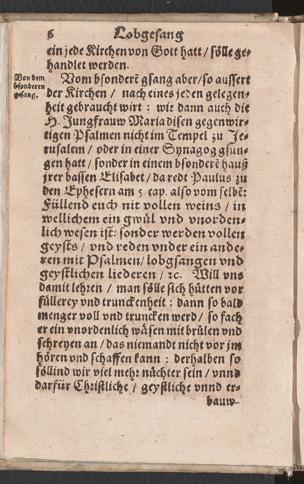 6 Lobgesang
ein jede Kirchen von Gott hatt / sölle ge-
handlet werden.
Von dem
bsonderen
gesang.
Vom bsonderē gsang aber / so aussert
der Kirchen / nach eines jeden gelegen-
heit gebraucht wirt : wie dann auch die
H. Jungfrauw Maria disen gegenwir-
tigen Psalmen nicht im Tempel zu Je-
rusalem / oder in einer Synagog gsun-
gen hatt / sonder in einem bsonderē hauß
jrer bassen Elisabet / da redt Paulus zu
den Ephesern am 5 cap. also vom selbē:
Füllend euch nit vollen weins / in
wellichem ein gwül vnd vnorden-
lich wesen ist: sonder werden vollen
geysts / vnd reden vnder ein ande-
ren mit Psalmen / lobgsangen vnd
geystlichen liederen / ꝛc. Will vns
damit lehren / man sölle sich hütten vor
füllerey vnd trunckenheit : dann so bald
menger voll vnd truncken werd / so fach
er ein vnordenlich wäsen mit brülen vnd
schreyen an / das niemandt nicht vor jm
hören vnd schaffen kann : derhalben so
söllind wir viel mehr nüchter sein / vnnd
darfür Christliche / geystliche vnnd er-
bauw-